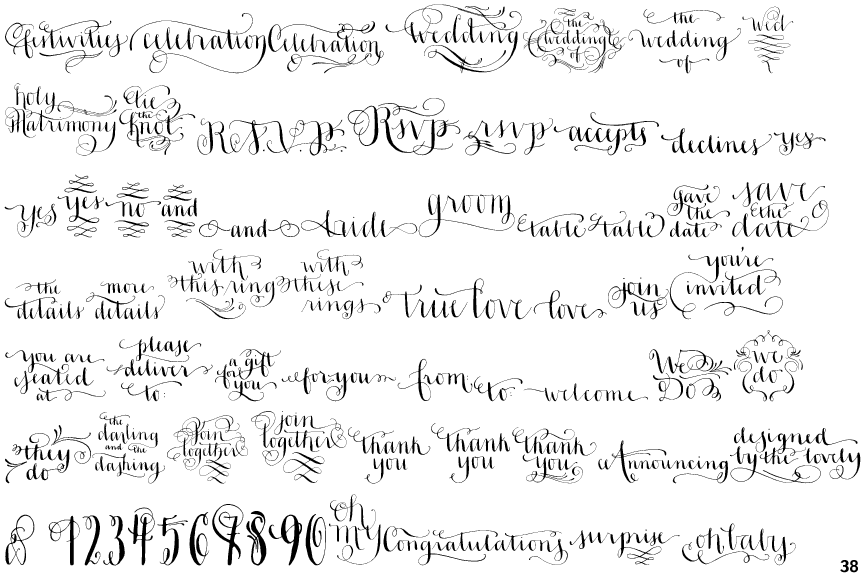 festivities celebration Celebration Wedding the wedding of the wedding of wed
holy Matrimony tie the knot R.S.V.P. Rsvp rsvp accepts declines yes
yes yes no and and bride groom table table save the date save the date
the details more details with this ring with these rings true love love join us you're invited
you are seated at please deliver to: a gift for you for you from: to: welcome We Do we do
they do the darling and the dashing Join together join together thank you thank you thank you Announcing designed by the lovely
& 1 2 3 4 5 6 7 8 9 0 oh my Congratulations surprise oh baby
38